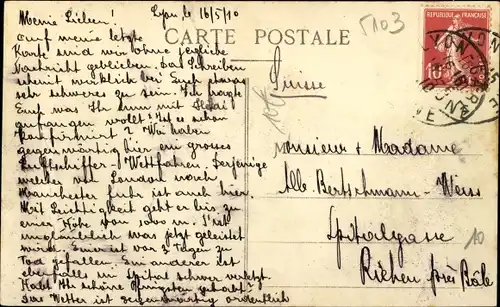 Meine Lieben!
Lyon le 16/5/10
5103
CARTE POSTALE
RÉPUBLIQUE FRANÇAISE
10
LYON
Auf meine letzte
Karte sind wir ohne jegliche
Nachricht geblieben. Das Schreiben
scheint wirklich bei Euch etwas
sehr schweres zu sein. Ich fragte
Euch was Ihr nun mit
anfangen wollt? Ist es schon
Konfirmiert? Wir haben
gegenwärtig hier ein grosses
Luftschiffer-Wettfahren. Derjenige
welcher von London nach
Manchester fuhr ist auch hier.
Mit Leichtigkeit geht er bis zu
einer Höhe von 900 m. S'ist
unglaublich was jetzt geleistet
wird. Einer ist vor 3 Tagen zu
Tod gefallen. Ein anderer ist
ebenfalls im Spital schwer verletzt.
Habt Ihr schöne Pfingsten gehabt?
Das Wetter ist gegenwärtig ordentlich
Suisse
Monsieur & Madame
Alb. Bertschmann-Weiss
Spitalgasse
Riehen près Bâle
10